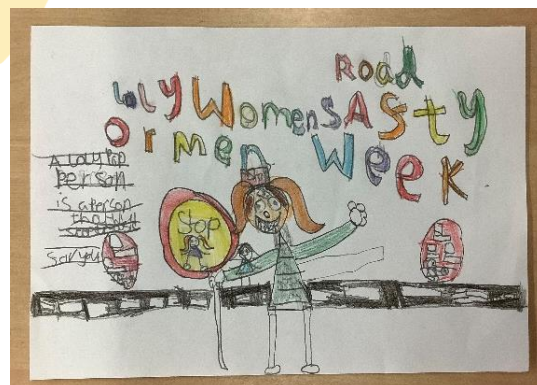 Road
loly Womens ASty
or men Week
A Lolypop
Person
is a person
that
Stop